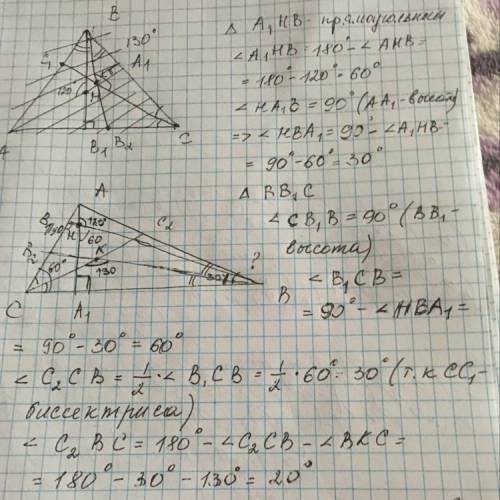 B
130°
C₁
A₁
120
H
A
B₁
B₂
C
Δ A₁HB - прямоугольный
∠A₁HB = 180° - ∠AHB =
= 180° - 120° = 60°
∠HA₁B = 90° (AA₁ - высота)
=> ∠HBA₁ = 90° - ∠A₁HB =
= 90° - 60° = 30°
Δ BB₁C
∠CB₁B = 90° (BB₁ -
высота)
∠B₁CB =
= 90° - ∠HBA₁ =
A
120°
C₂
H
60
K
60°
130
30°
?
C
A₁
B
= 90° - 30° = 60°
∠C₂CB = 1/2 · ∠B₁CB = 1/2 · 60° = 30° (т.к CC₁ -
биссектриса)
∠C₂BC = 180° - ∠C₂CB - ∠BKC =
= 180° - 30° - 130° = 20°